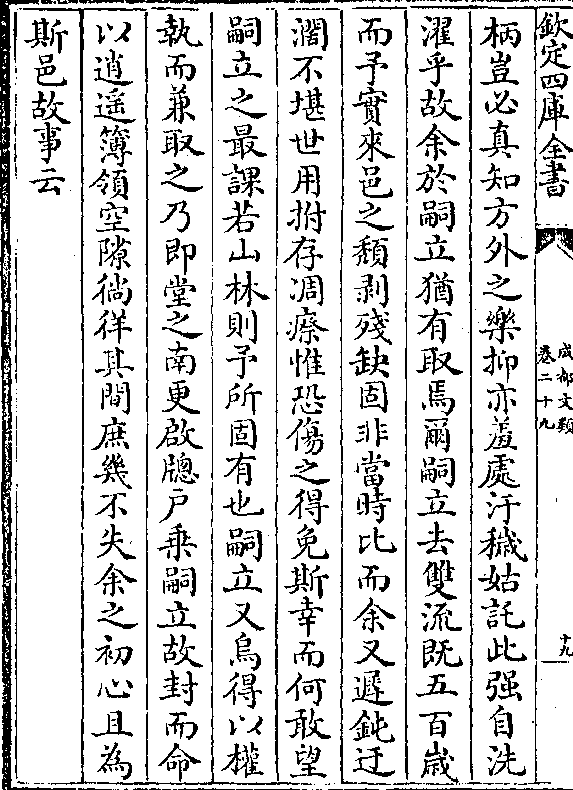 欽定四庫全書
成都文類
卷二十九
十九
柄豈必真知方外之樂抑亦羞處汙穢姑託此强自洗
濯乎故余於嗣立猶有取焉爾嗣立去雙流既五百歳
而予實來邑之頽剥殘缺固非當時比而余又遲鈍迂
濶不堪世用拊存凋瘵惟恐傷之得免斯幸而何敢望
嗣立之最課若山林則予所固有也嗣立又烏得以權
執而兼取之乃即堂之南更啟牕戸乗嗣立故封而命
以逍遥簿領空隙徜徉其間庶幾不失余之初心且為
斯邑故事云